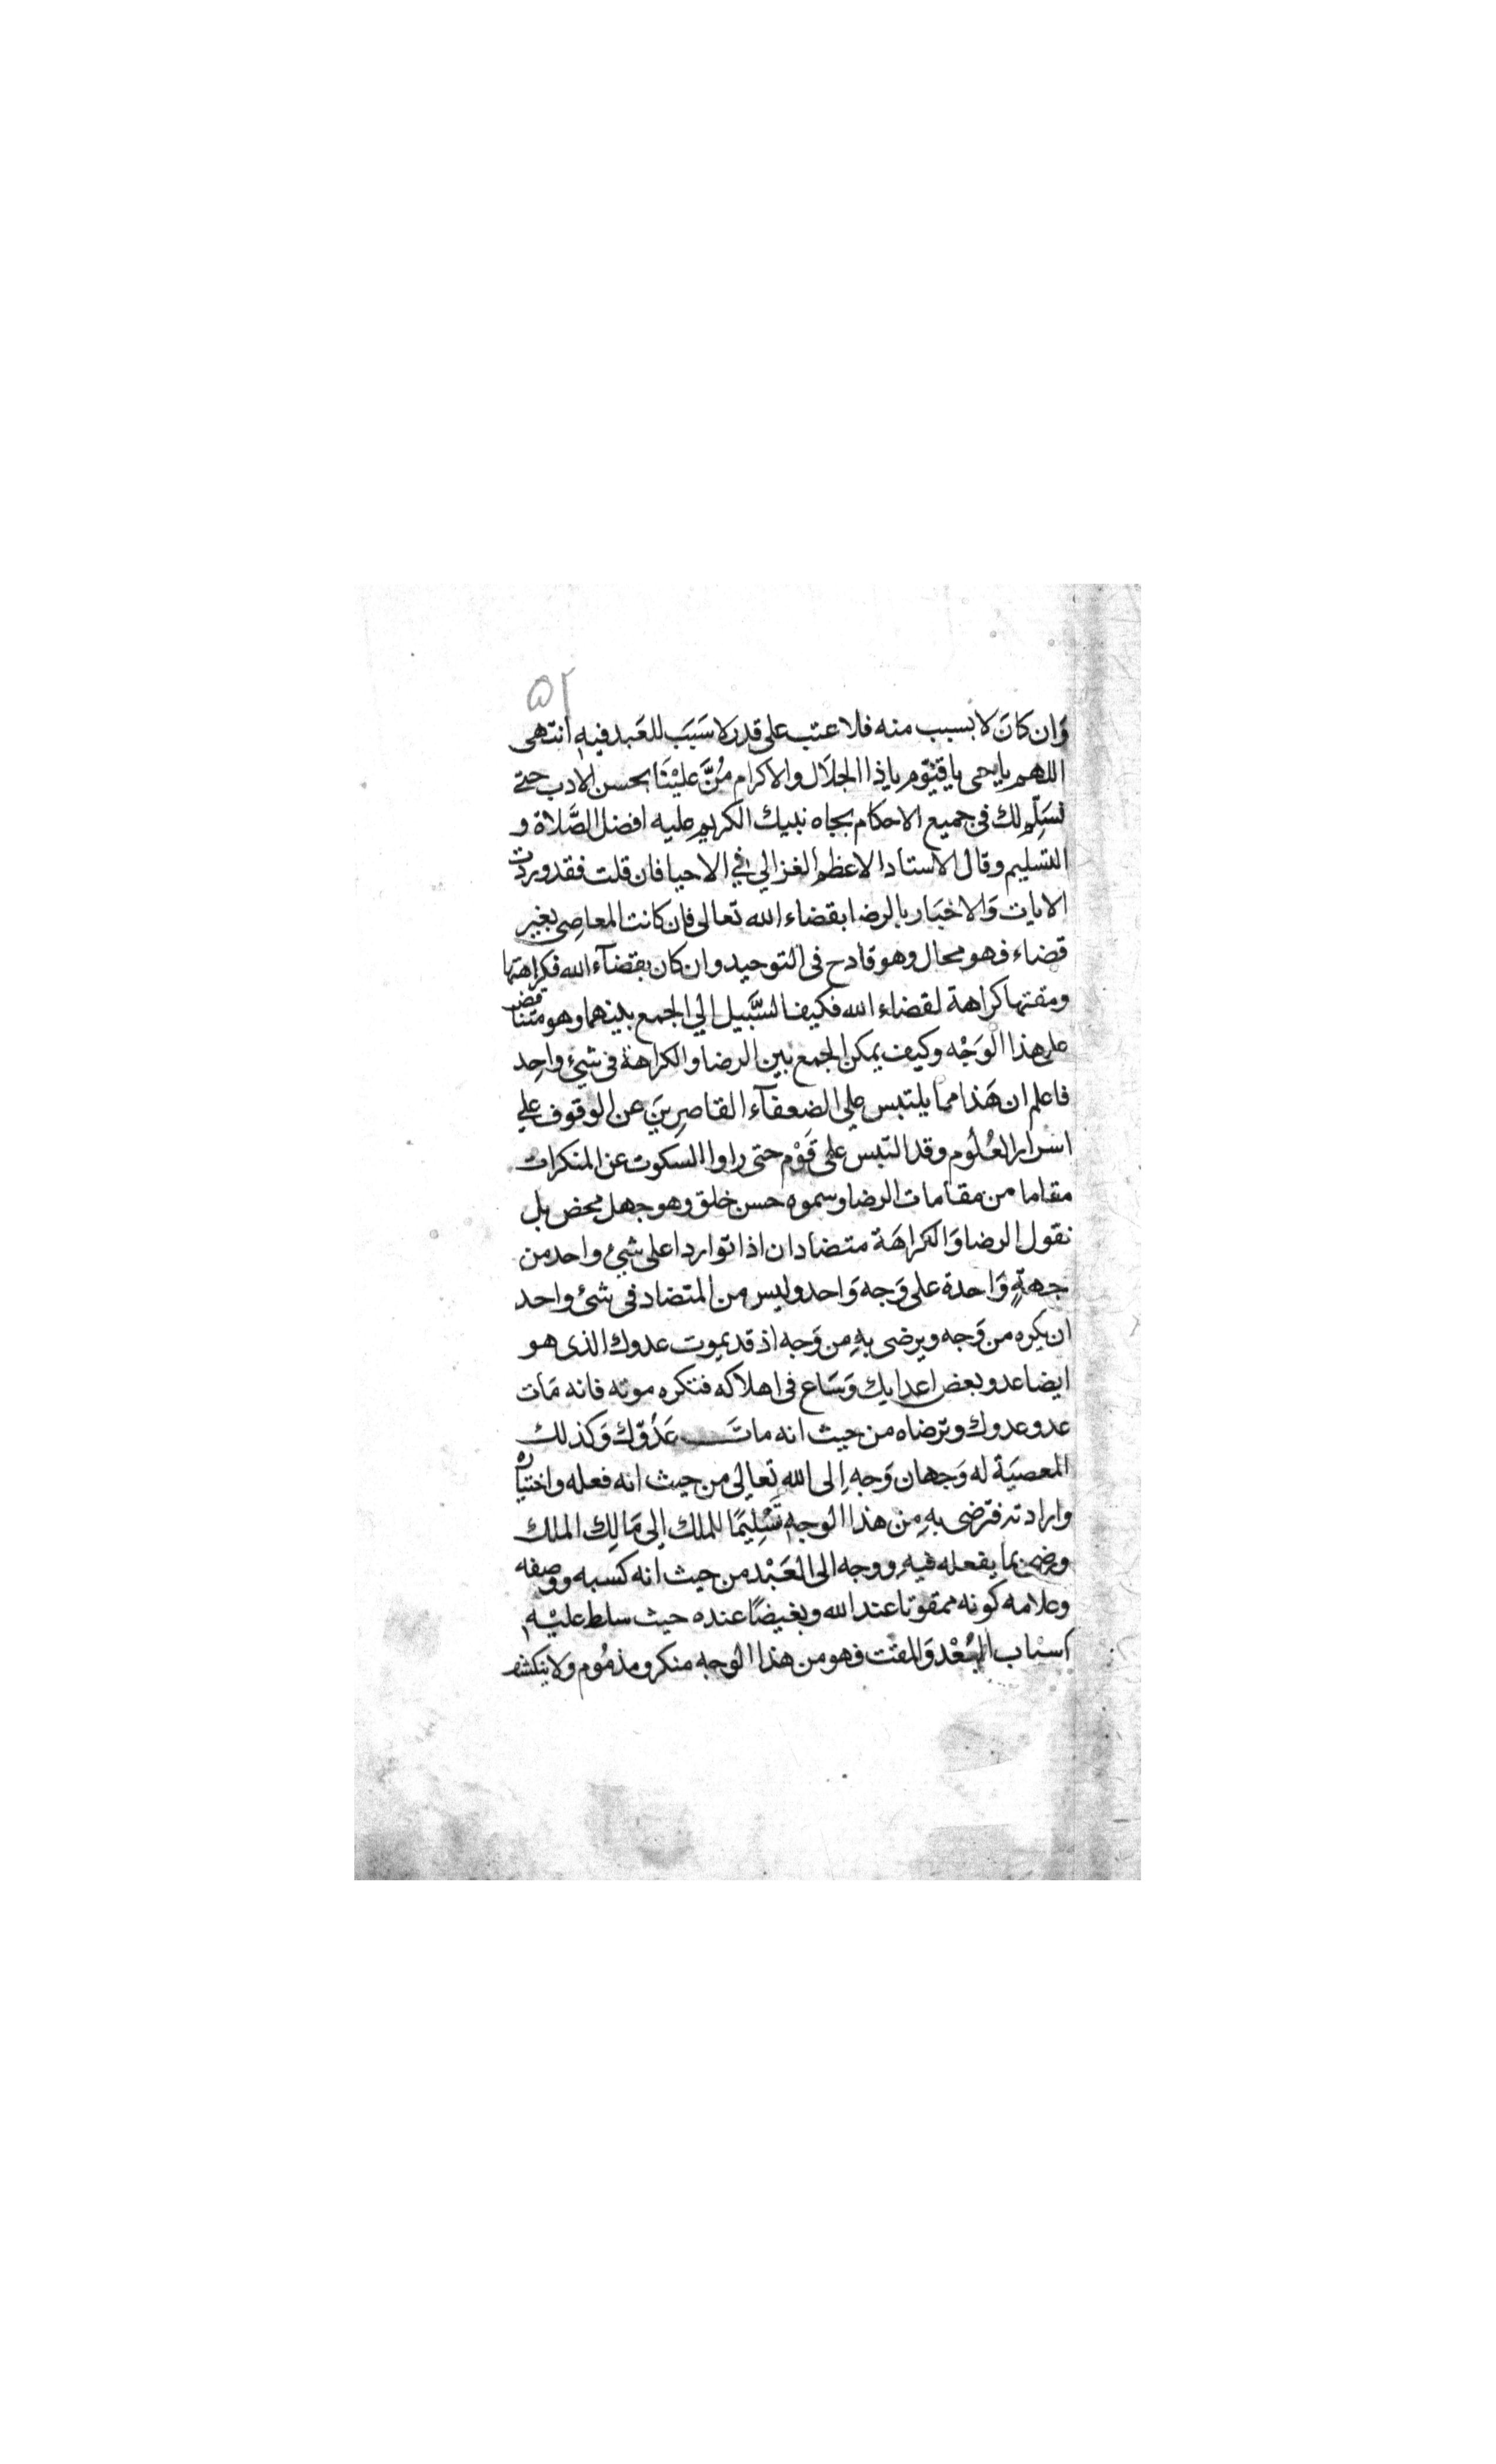 ٥٢
وَان كانَ لا بسبب منه فلا عتب على قدر لا سَبَبَ للعَبد فيهِ انتهى
اللهم يا حي يا قيّوم يا ذا الجلَال والاكرام مُنَّ عليْنَا بحسن الادب حتى
نسَلِّم لك في جميع الاحكام بجاه نبيك الكريم عليه افضل الصَّلاة و
التسليم وقال الاستاد الاعظم الغزالي في الاحيا فان قلت فقد وردت
الايات وَالاخبَار بالرضا بقضاء الله تعالى فان كانت المعاصِى بغير
قضاء فهو محال وهو قادح فى التوحيد وان كان بقضآء الله فكراهتها
ومقتها كراهة لقضاء الله فكيف السَّبيل الي الجمع بينهما وهو متناقض
على هذا الوَجْه وكيف يمكن الجمع بين الرضا والكراهة فى شيْ واحِد
فاعلم ان هَذا مما يلتبس علي الضعفآء القاصِرينَ عن الوقوف علي
اسْرار العُلُوم وقد التبس على قَوْم حتى راوا السكوت عن المنكرات
مقاما من مقامات الرضا وسموه حسن خلق وهو جهل محض بل
نقول الرضا وَالكراهَة متضادان اذا تواردا على شئ واحد من
جهةٍ وَاحدة على وَجه وَاحد وليس من المتضاد فى شئ واحد
ان يكره من وَجه ويرضى بهِ من وَجه اذ قد يموت عدوك الذى هو
ايضا عدو بعض اعدايك وَسَاع فى اهلاكه فتكره موته فانه مَات
عدو عدوك وترضاه من حيث انه ماتَ عَدُوّك وَكذلك
المعصيَة له وَجهان وَجه اِلى الله تعالى من حيث انه فعله واختياره
وارادته فترضى بهِ مِن هذا الوجهِ تَسْلِيمًا للملك إلى مَالِك الملك
ورضى بما يفعله فيهِ ووجه الى العَبْد من حيث انه كسبه ووصفه
وعلامه كونه ممقوتا عند الله وبغيضًا عنده حيث سلط عليْهِ
اسباب البُعْد وَالمقت فهو من هذا الوجه منكر ومذمُوم ولا ينكشف